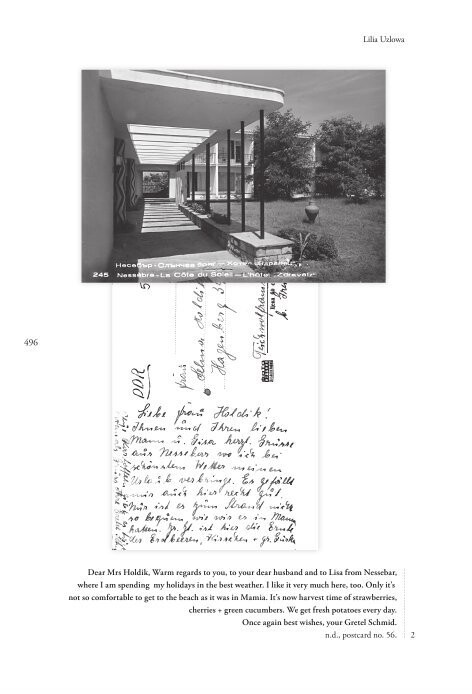 Lilia Uzlowa
Несебър - Слънчев бряг - Хотел „Здравец“
245 Nessèbre - La Côte du Soleil - L'hôtel „Zdravetz“
496
DDR
Frau
Holdik
Hagenberg
Liebe Frau Holdik!
Ihnen und Ihren lieben
Mann u. Lisa herzl. Grüsse
aus Nessebar wo ich bei
schönstem Wetter meinen
Urlaub verbringe. Es gefällt
mir auch hier recht gut.
Nur ist es zum Strand nicht
so bequem wie wir es in Mamaia
hatten. Zr. Zt. ist hier die Ernte
der Erdbeeren, Kirschen + gr. Gurken
Dear Mrs Holdik, Warm regards to you, to your dear husband and to Lisa from Nessebar,
where I am spending my holidays in the best weather. I like it very much here, too. Only it's
not so comfortable to get to the beach as it was in Mamia. It's now harvest time of strawberries,
cherries + green cucumbers. We get fresh potatoes every day.
Once again best wishes, your Gretel Schmid.
n.d., postcard no. 56. 2